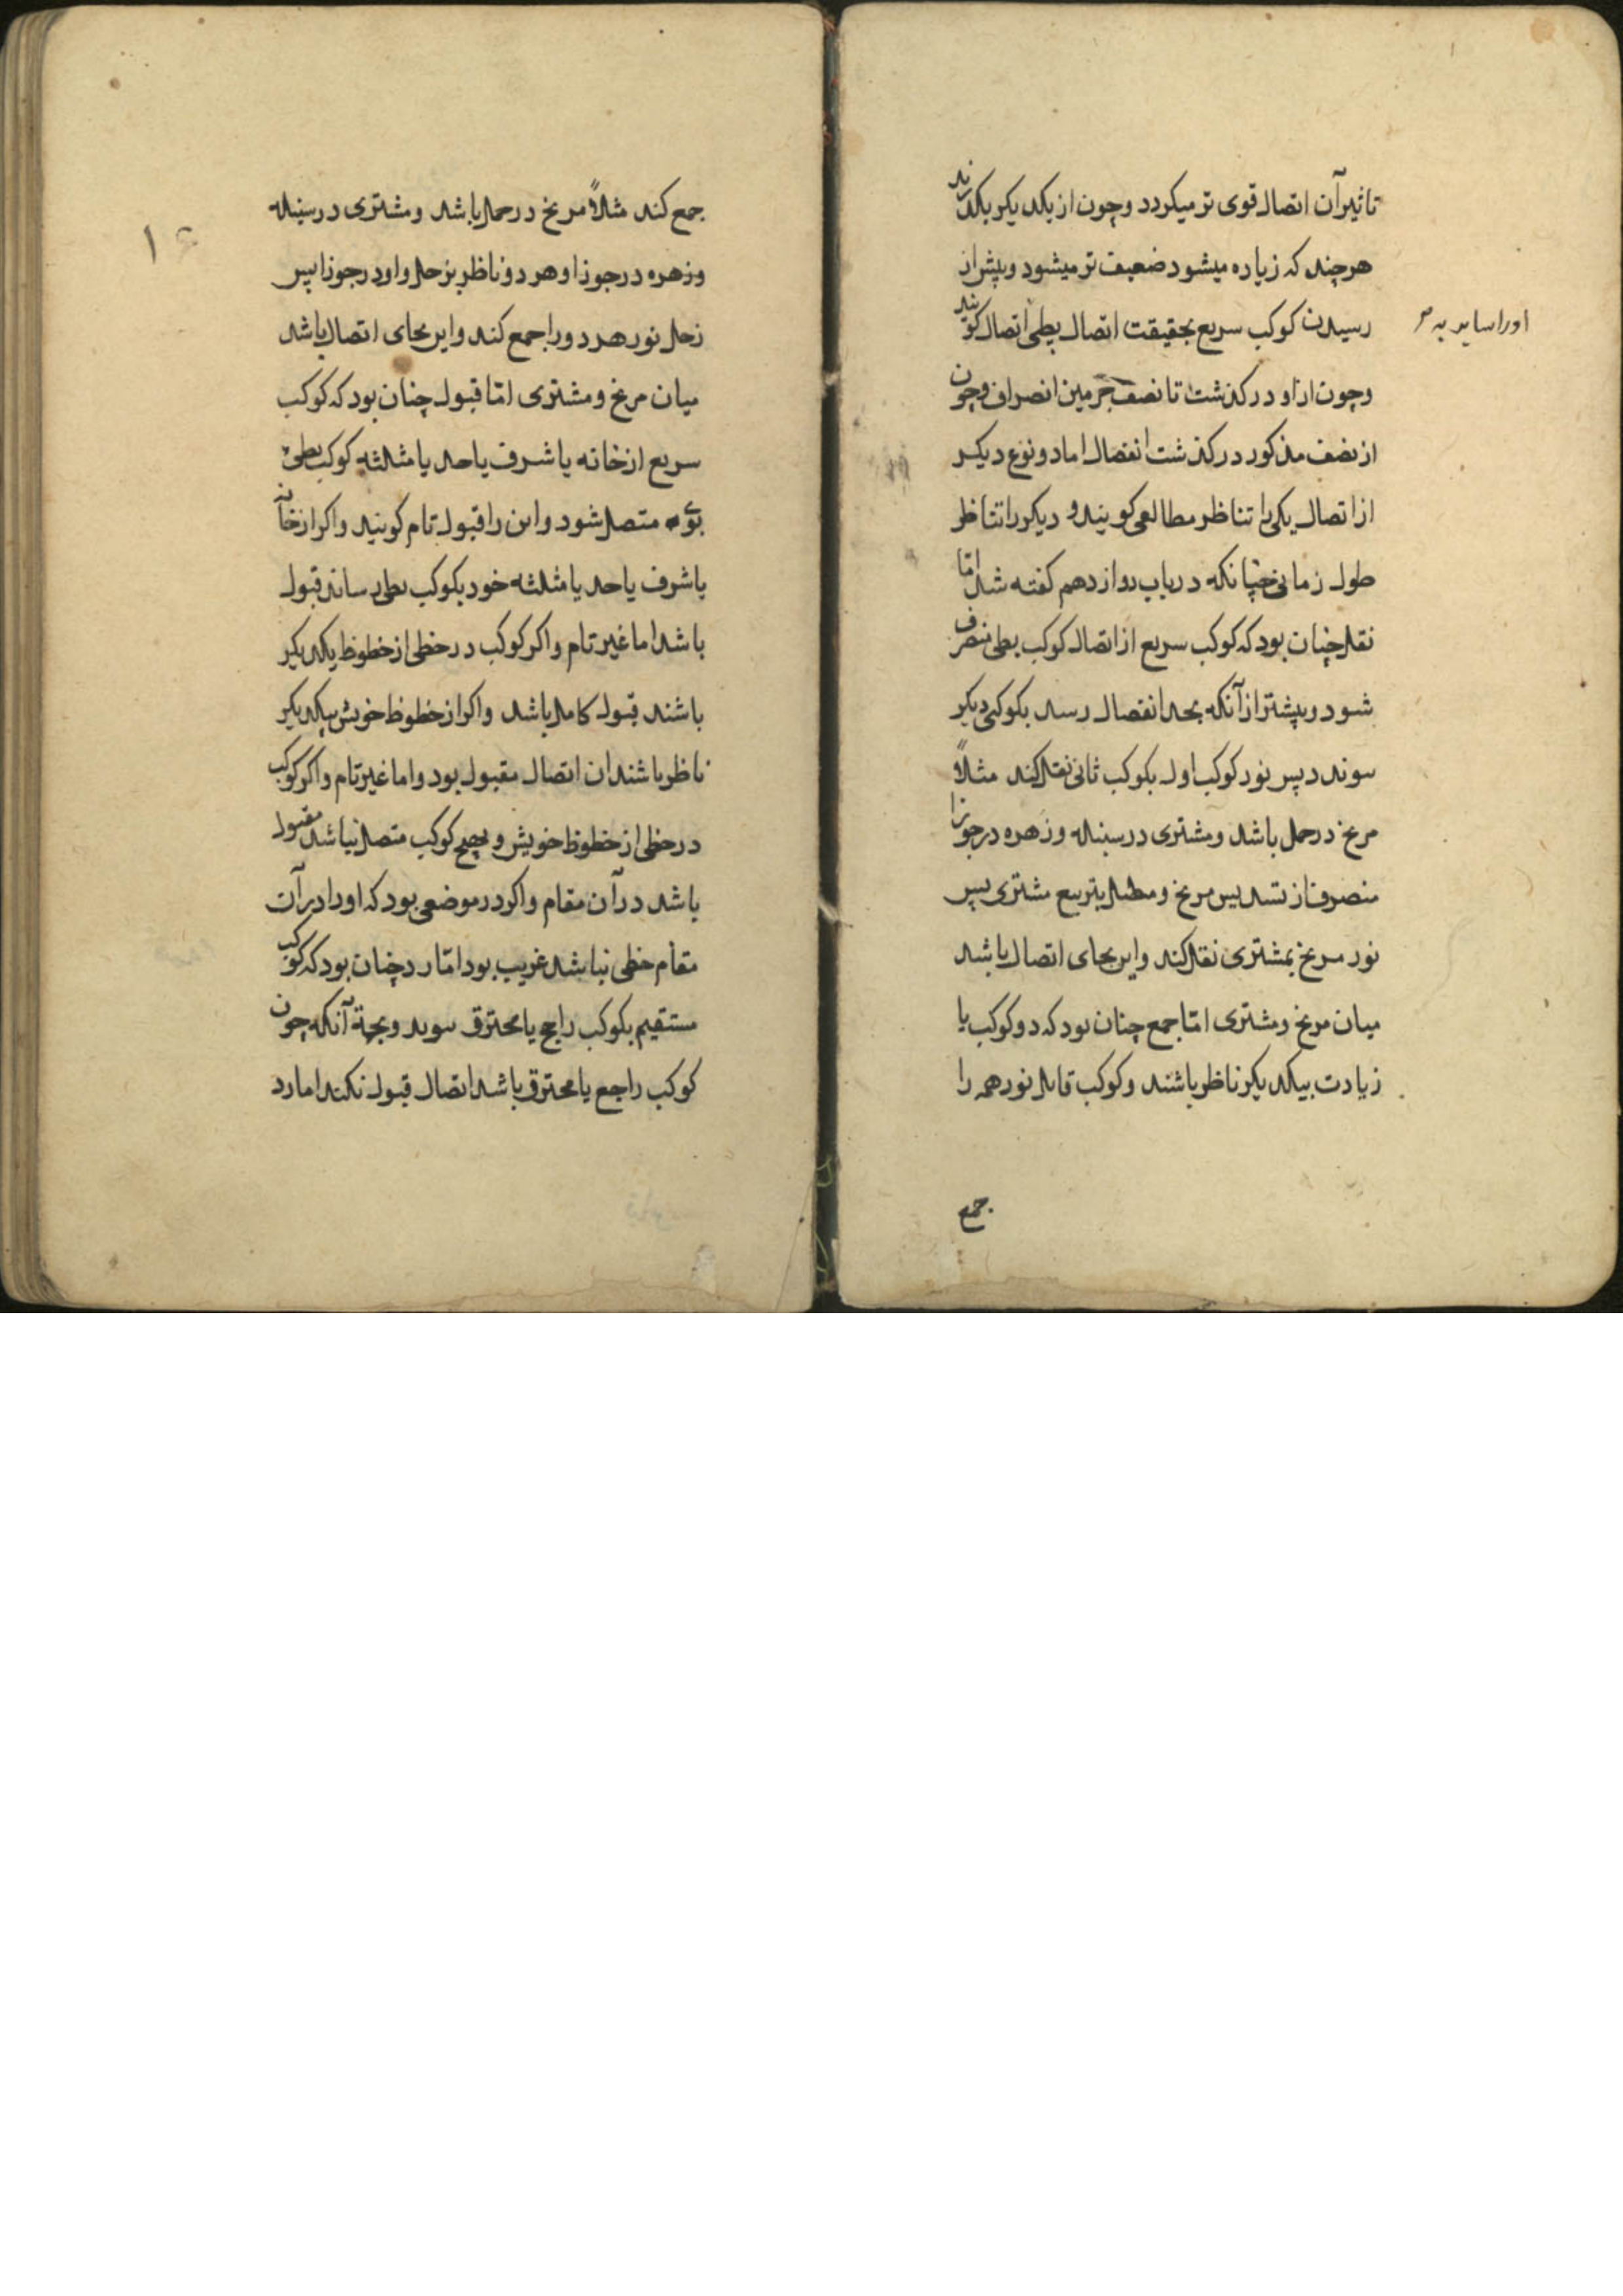 تاثیر آن اتصال قوی تر میکردد وچون از یکدیکر بگذرند
هرچند که زیاده میشود ضعیف تر میشود وپیش از
رسیدن کوکب سریع بحقیقت اتصال بطی اتصال کویند
وچون از او درکذشت تا نصف جرمین انصراف وچون
از نصف مذکور درکذشت انفصال اما دو نوع دیکر
از اتصال یکی را تناظر مطالعی کویند و دیکر را تناظر
طول زمانی چنانکه در باب دوازدهم کفته شد اما
نقل چنان بود که کوکب سریع از اتصال کوکب بطی منصرف
شود وپیشتر از آنکه بحد انفصال رسد بکوکبی دیکر
پیوندد پس نور کوکب اول بکوکب ثانی نقل کند مثلاً
مریخ در حمل باشد ومشتری در سنبله وزهره در جوزا
منصرف از تسدیس مریخ ومتصل بتربیع مشتری پس
نور مریخ بمشتری نقل کند واین بجای اتصال باشد
میان مریخ ومشتری امّا جمع چنان بود که دو کوکب یا
زیادت بیکدیکر ناظر باشند وکوکب قابل نور همه را
جمع
جمع کند مثلاً مریخ در حمل باشد ومشتری در سنبله
وزهره در جوزا وهر دو ناظر بزحل واو در جوزا پس
زحل نور هر دو را جمع کند واین بجای اتصال باشد
میان مریخ ومشتری امّا قبول چنان بود که کوکب
سریع از خانه یا شرف یا حد یا مثلثه کوکب بطی
بوی متصل شود واین را قبول تام کویند واکر از خانه
یا شرف یا حد یا مثلثه خود بکوکب بطی رساند قبول
باشد اما غیر تام واکر کوکب در حظی از حظوظ یکدیکر
باشند قبول کامل باشد واکر از حظوظ خویش بیکدیکر
ناظر باشند ان اتصال مقبول بود واما غیر تام واکر کوکب
در حظی از حظوظ خویش وبهیچ کوکب متصل نباشد مقبول
باشد در آن مقام واکر در موضعی بود که اورا در آن
مقام حظی نباشد غریب بود امّا رد چنان بود که کوکب
مستقیم بکوکب راجع یا محترق پیوندد وبجهة آنکه چون
کوکب راجع یا محترق باشد اتصال قبول نکند اما رد